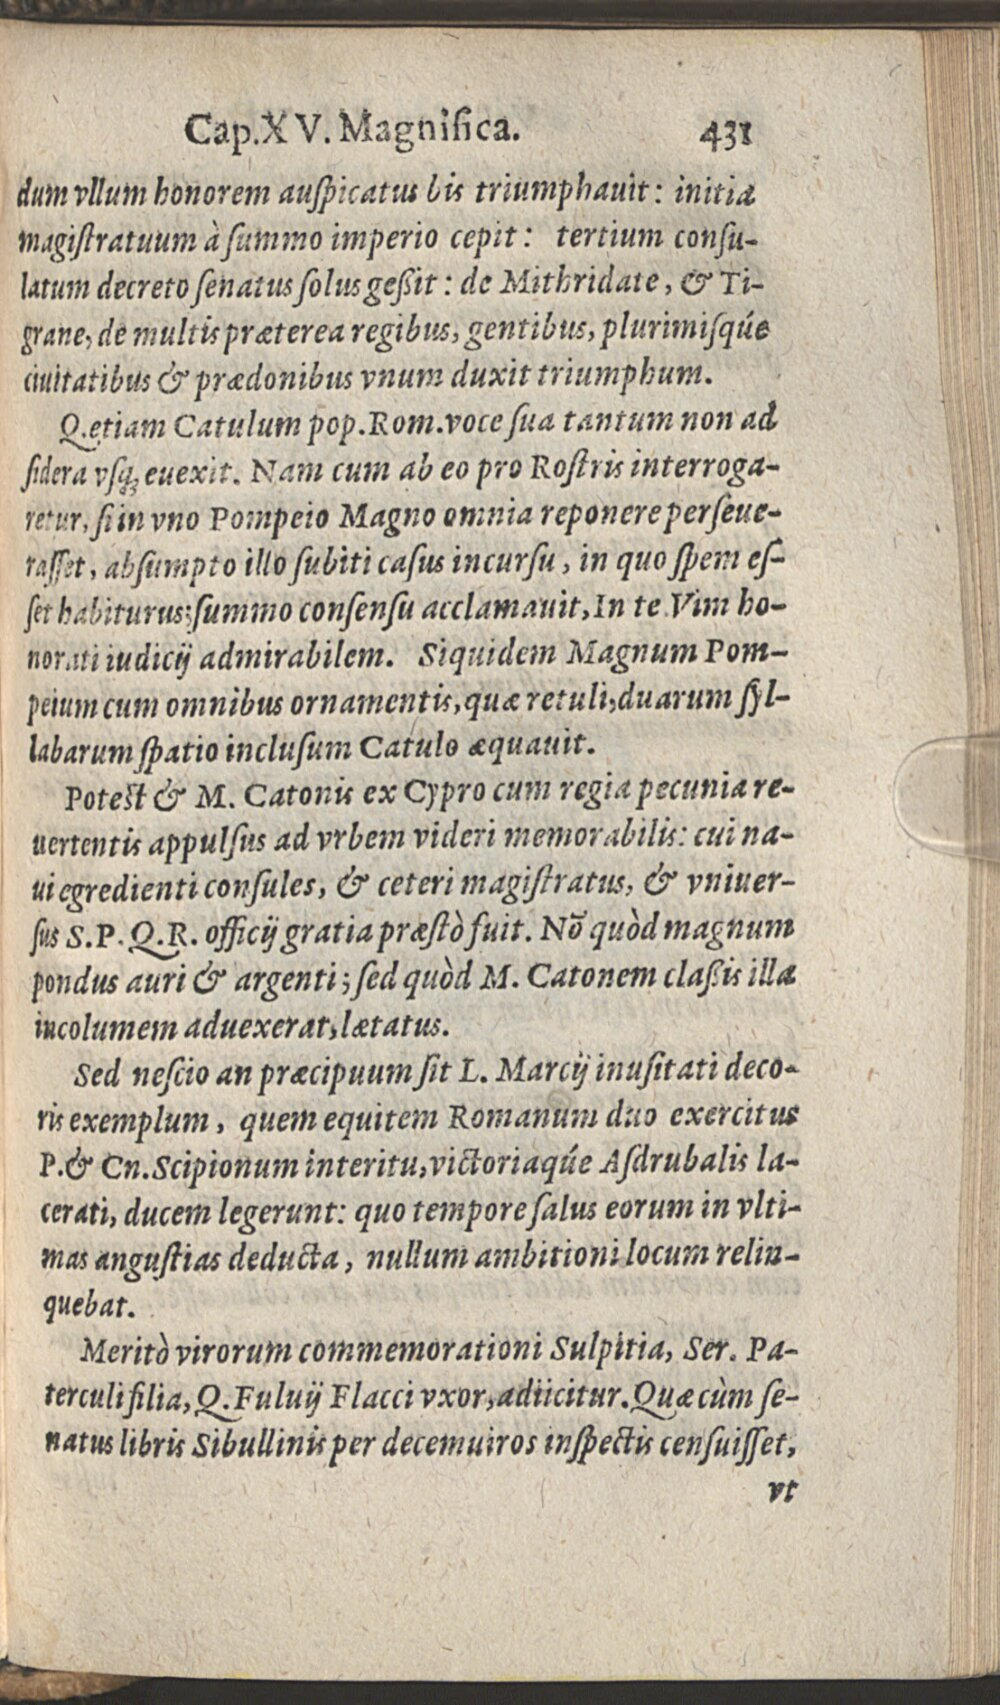 Cap. XV. Magnifica. 431
dum vllum honorem auſpicatus bis triumphauit: initia
magiſtratuum à ſummo imperio cepit: tertium conſu-
latum decreto ſenatus ſolus geßit: de Mithridate, & Ti-
grane, de multis præterea regibus, gentibus, plurimiſqúe
ciuitatibus & prædonibus vnum duxit triumphum.
Q. etiam Catulum pop. Rom. voce ſua tantum non ad
ſidera vſq; euexit. Nam cum ab eo pro Roſtris interroga-
retur, ſi in vno Pompeio Magno omnia reponere perſeue-
raſſet, abſumpto illo ſubiti caſus incurſu, in quo ſpem eſ-
ſet habiturus; ſummo conſenſu acclamauit, In te. Vim ho-
norati iudicij admirabilem. Siquidem Magnum Pom-
peium cum omnibus ornamentis, quæ retuli, duarum ſyl-
labarum ſpatio incluſum Catulo æquauit.
Poteſt & M. Catonis ex Cypro cum regia pecunia re-
uertentis appulſus ad vrbem videri memorabilis: cui na-
ui egredienti conſules, & ceteri magiſtratus, & vniuer-
ſus S. P. Q. R. officij gratia præſtò fuit. Nō quòd magnum
pondus auri & argenti; ſed quòd M. Catonem claßis illa
incolumem aduexerat, lætatus.
Sed neſcio an præcipuum ſit L. Marcij inuſitati deco-
ris exemplum, quem equitem Romanum duo exercitus
P. & Cn. Scipionum interitu, victoriaqúe Aſdrubalis la-
cerati, ducem legerunt: quo tempore ſalus eorum in vlti-
mas anguſtias deducta, nullum ambitioni locum relin-
quebat.
Meritò virorum commemorationi Sulpitia, Ser. Pa-
terculi filia, Q. Fuluij Flacci vxor, adiicitur. Quæ cùm ſe-
natus libris Sibullinis per decemuiros inſpectis cenſuiſſet,
vt